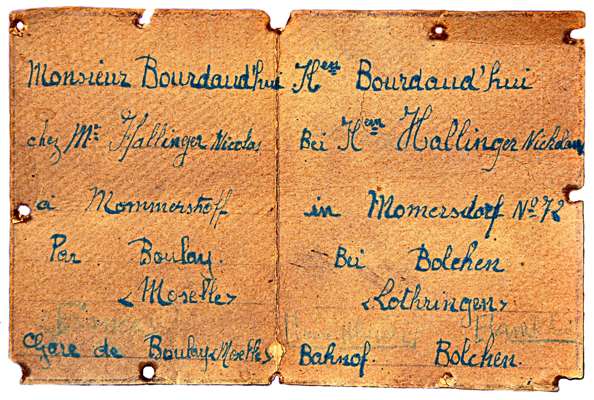 Monsieur Bourdaud'hui
chez Mr Hallinger Nicolas
à Mommerstroff
Par Boulay.
<Moselle>
Gare de Boulay <Moselle>
Hern Bourdaud'hui
Bei Hern Hallinger Nicklaus
in Momersdorf No 72
Bei Bolchen
<Lothringen>
Bahnof. Bolchen.